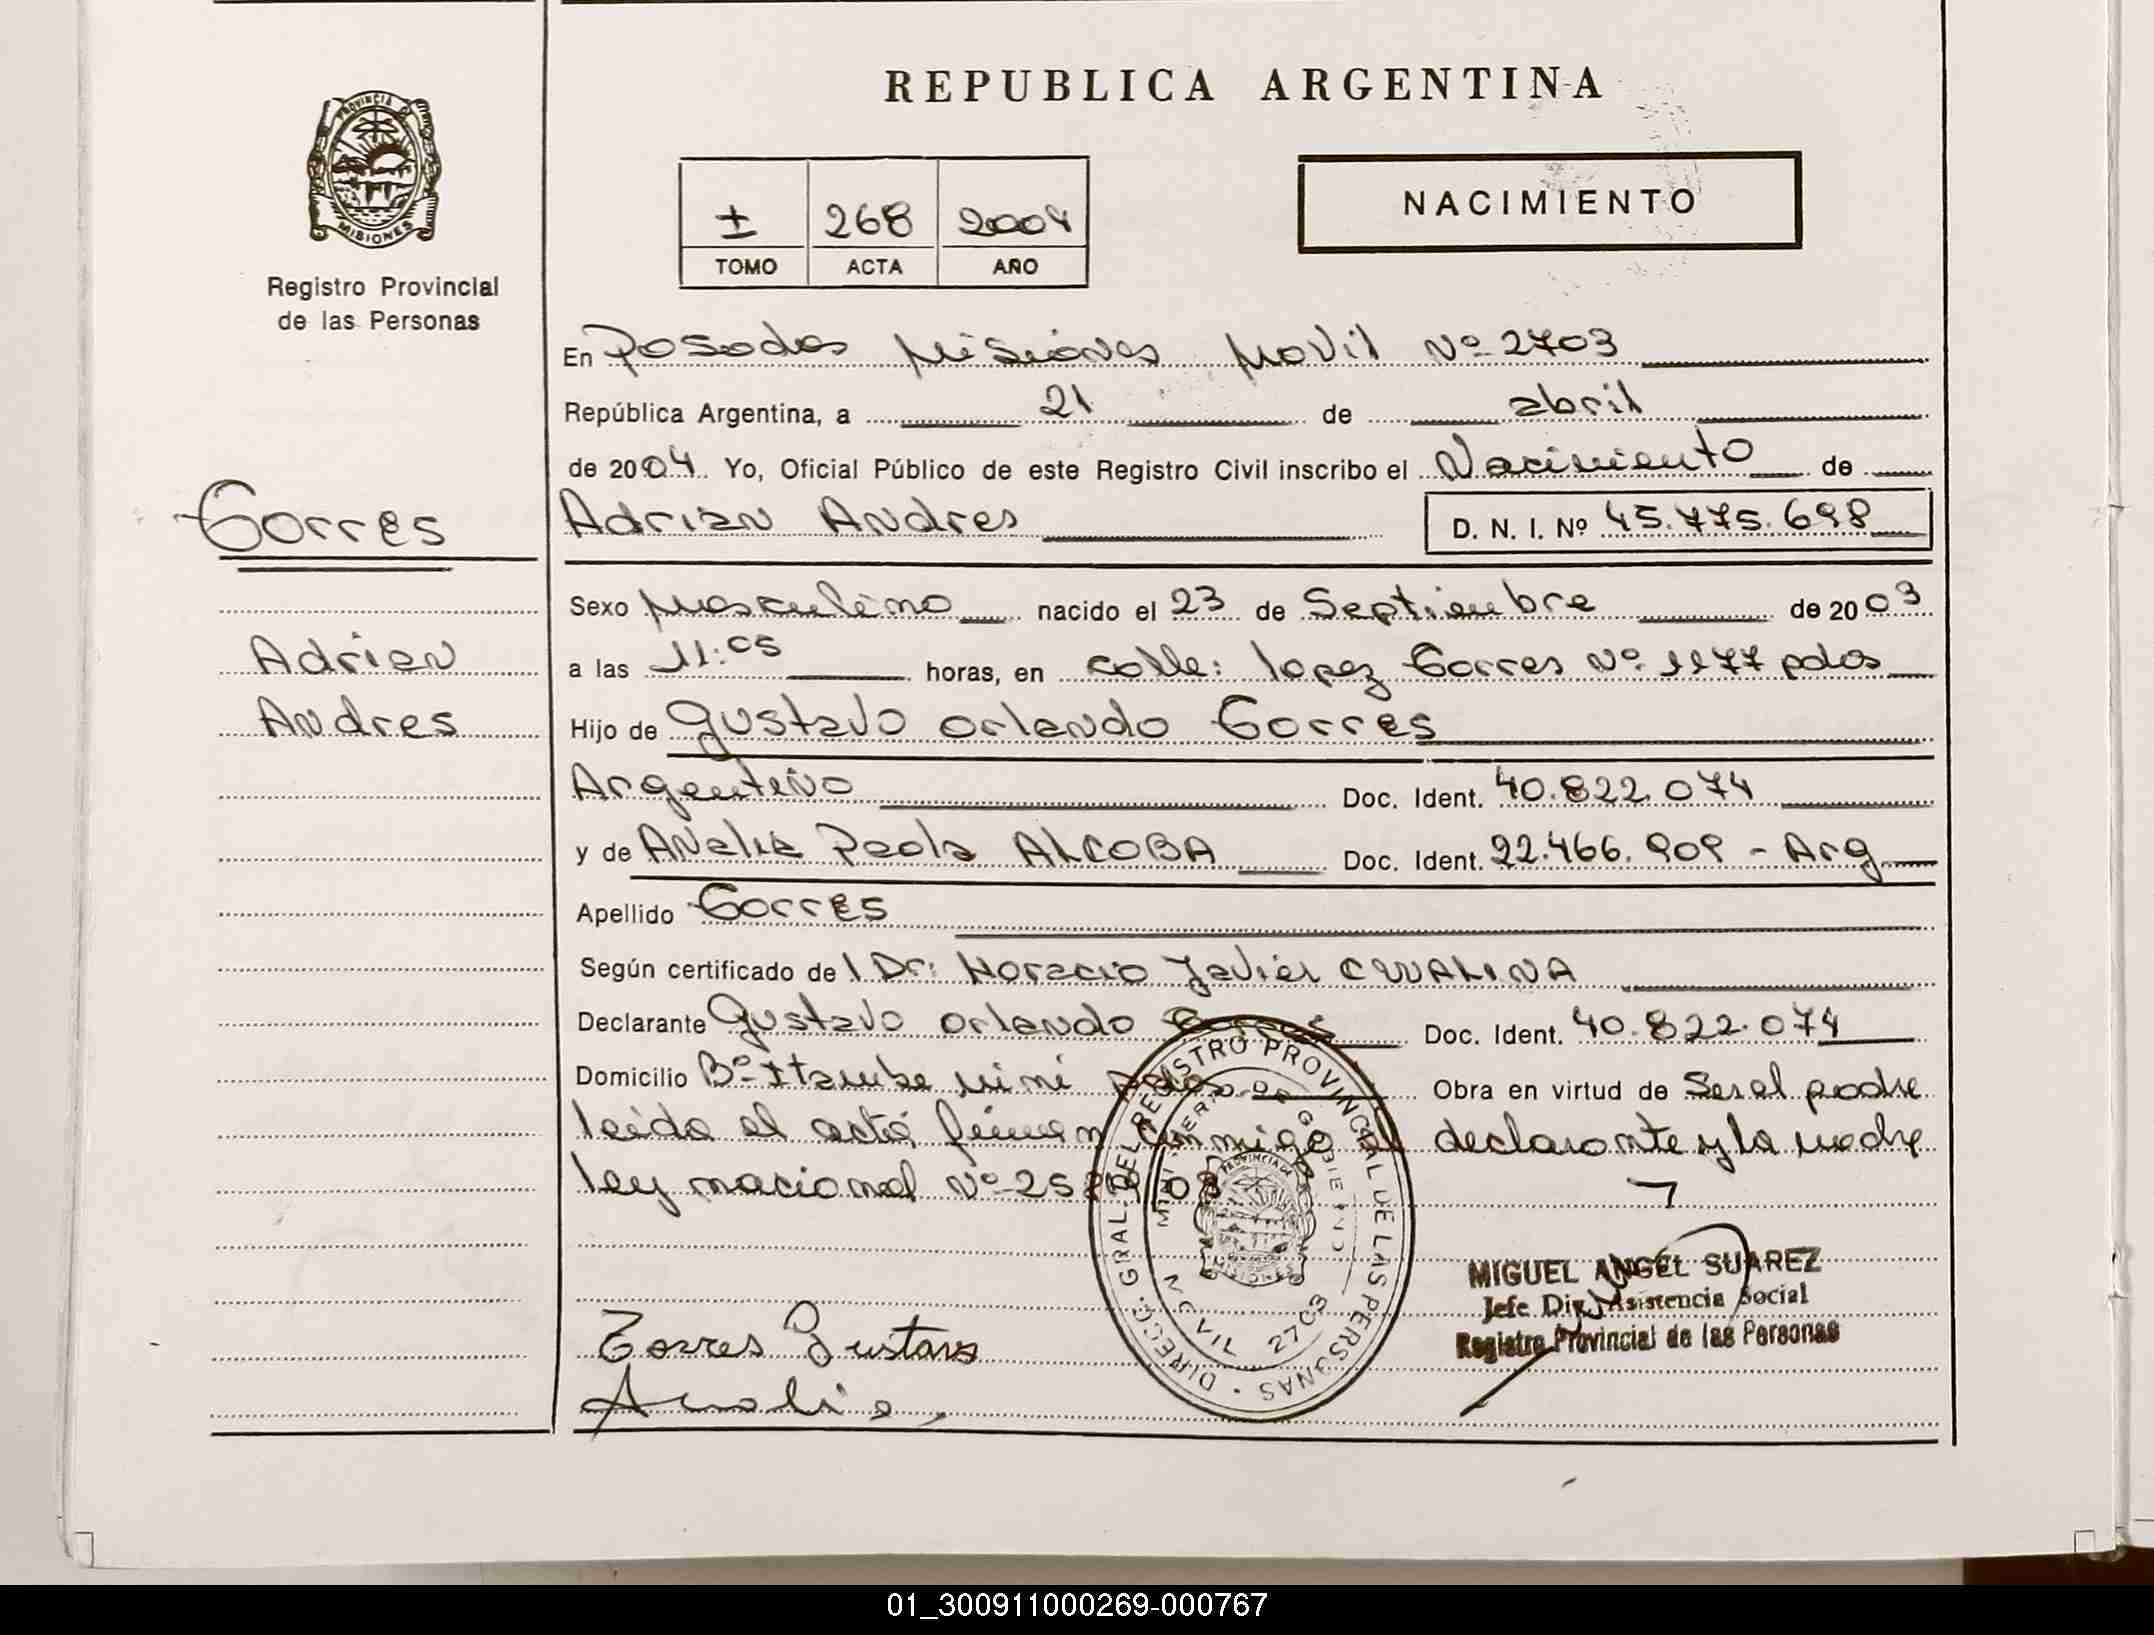 REPUBLICA ARGENTINA
PROVINCIA DE MISIONES
Registro Provincial
de las Personas
± 268 2004
TOMO ACTA AÑO
NACIMIENTO
En Posadas Misiones Movil Nº 2703
República Argentina, a 21 de abril
de 2004 Yo, Oficial Público de este Registro Civil inscribo el Nacimiento de
Torres
Adrian Andres D. N. I. Nº 45.775.698
Sexo Masculino nacido el 23 de Septiembre de 2003
Adrian
a las 11:05 horas, en calle: lopez Torres Nº 1177 pdas
Andres
Hijo de Gustavo Orlando Torres
Argentino Doc. Ident. 40.822.074
y de Analia Paola ALCOBA Doc. Ident. 22.466.909 - Arg
Apellido Torres
Según certificado de l Dr: Horacio Javier CWALINA
Declarante Gustavo Orlando Torres Doc. Ident. 40.822.074
Domicilio Bº Itaembe mini pdas Obra en virtud de Ser el padre
leida el acta, firman conmigo el declarante y la madre
ley nacional Nº 25
DIRECC. GRAL. DEL REGISTRO PROVINCIAL DE LAS PERSONAS
MINISTERIO DE GOBIERNO
MOVIL 2703
MIGUEL ANGEL SUAREZ
Jefe Div. Asistencia Social
Registro Provincial de las Personas
Torres Gustavo
Analia
01_300911000269-000767